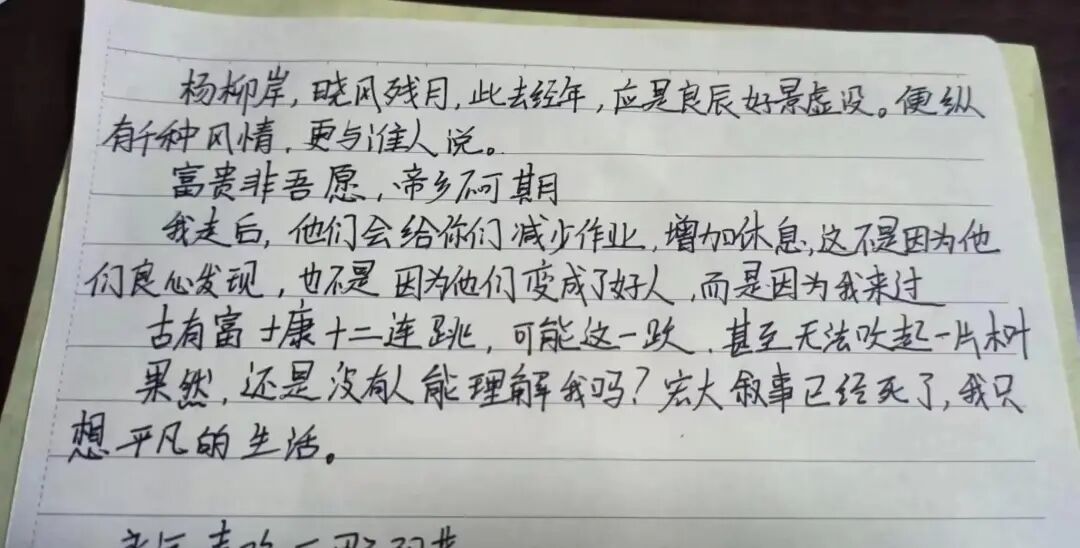 杨柳岸，晓风残月，此去经年，应是良辰好景虚设。便纵
有千种风情，更与谁人说。
富贵非吾愿，帝乡不可期
我走后，他们会给你们减少作业，增加休息，这不是因为他
们良心发现，也不是因为他们变成了好人，而是因为我来过
古有富士康十二连跳，可能这一跃，甚至无法吹起一片树叶
果然，还是没有人能理解我吗？宏大叙事已经死了，我只
想平凡的生活。